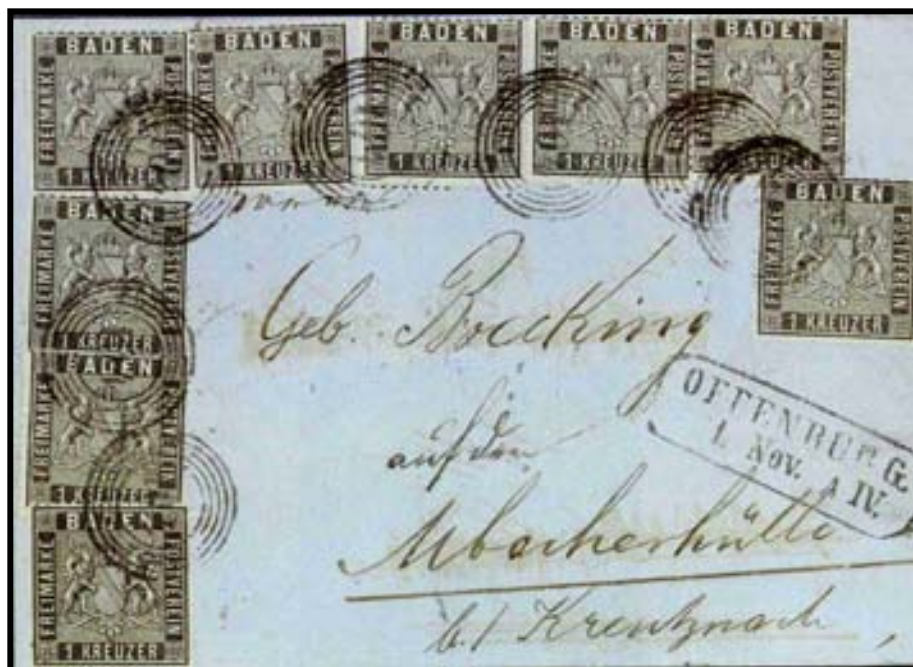 BADEN
FREIMARKE
POSTVEREIN
1 KREUZER
BADEN
FREIMARKE
1 KREUZER
BADEN
FREIMARKE
POSTVEREIN
1 KREUZER
BADEN
FREIMARKE
POSTVEREIN
1 KREUZER
BADEN
FREIMARKE
POSTVEREIN
1 KREUZER
BADEN
FREIMARKE
POSTVEREIN
1 KREUZER
BADEN
FREIMARKE
POSTVEREIN
1 KREUZER
BADEN
FREIMARKE
POSTVEREIN
1 KREUZER
BADEN
FREIMARKE
POSTVEREIN
1 KREUZER
Geb. Boecking
auf der
OFFENBURG.
1. NOV. A IV.
b./ Kreuznach